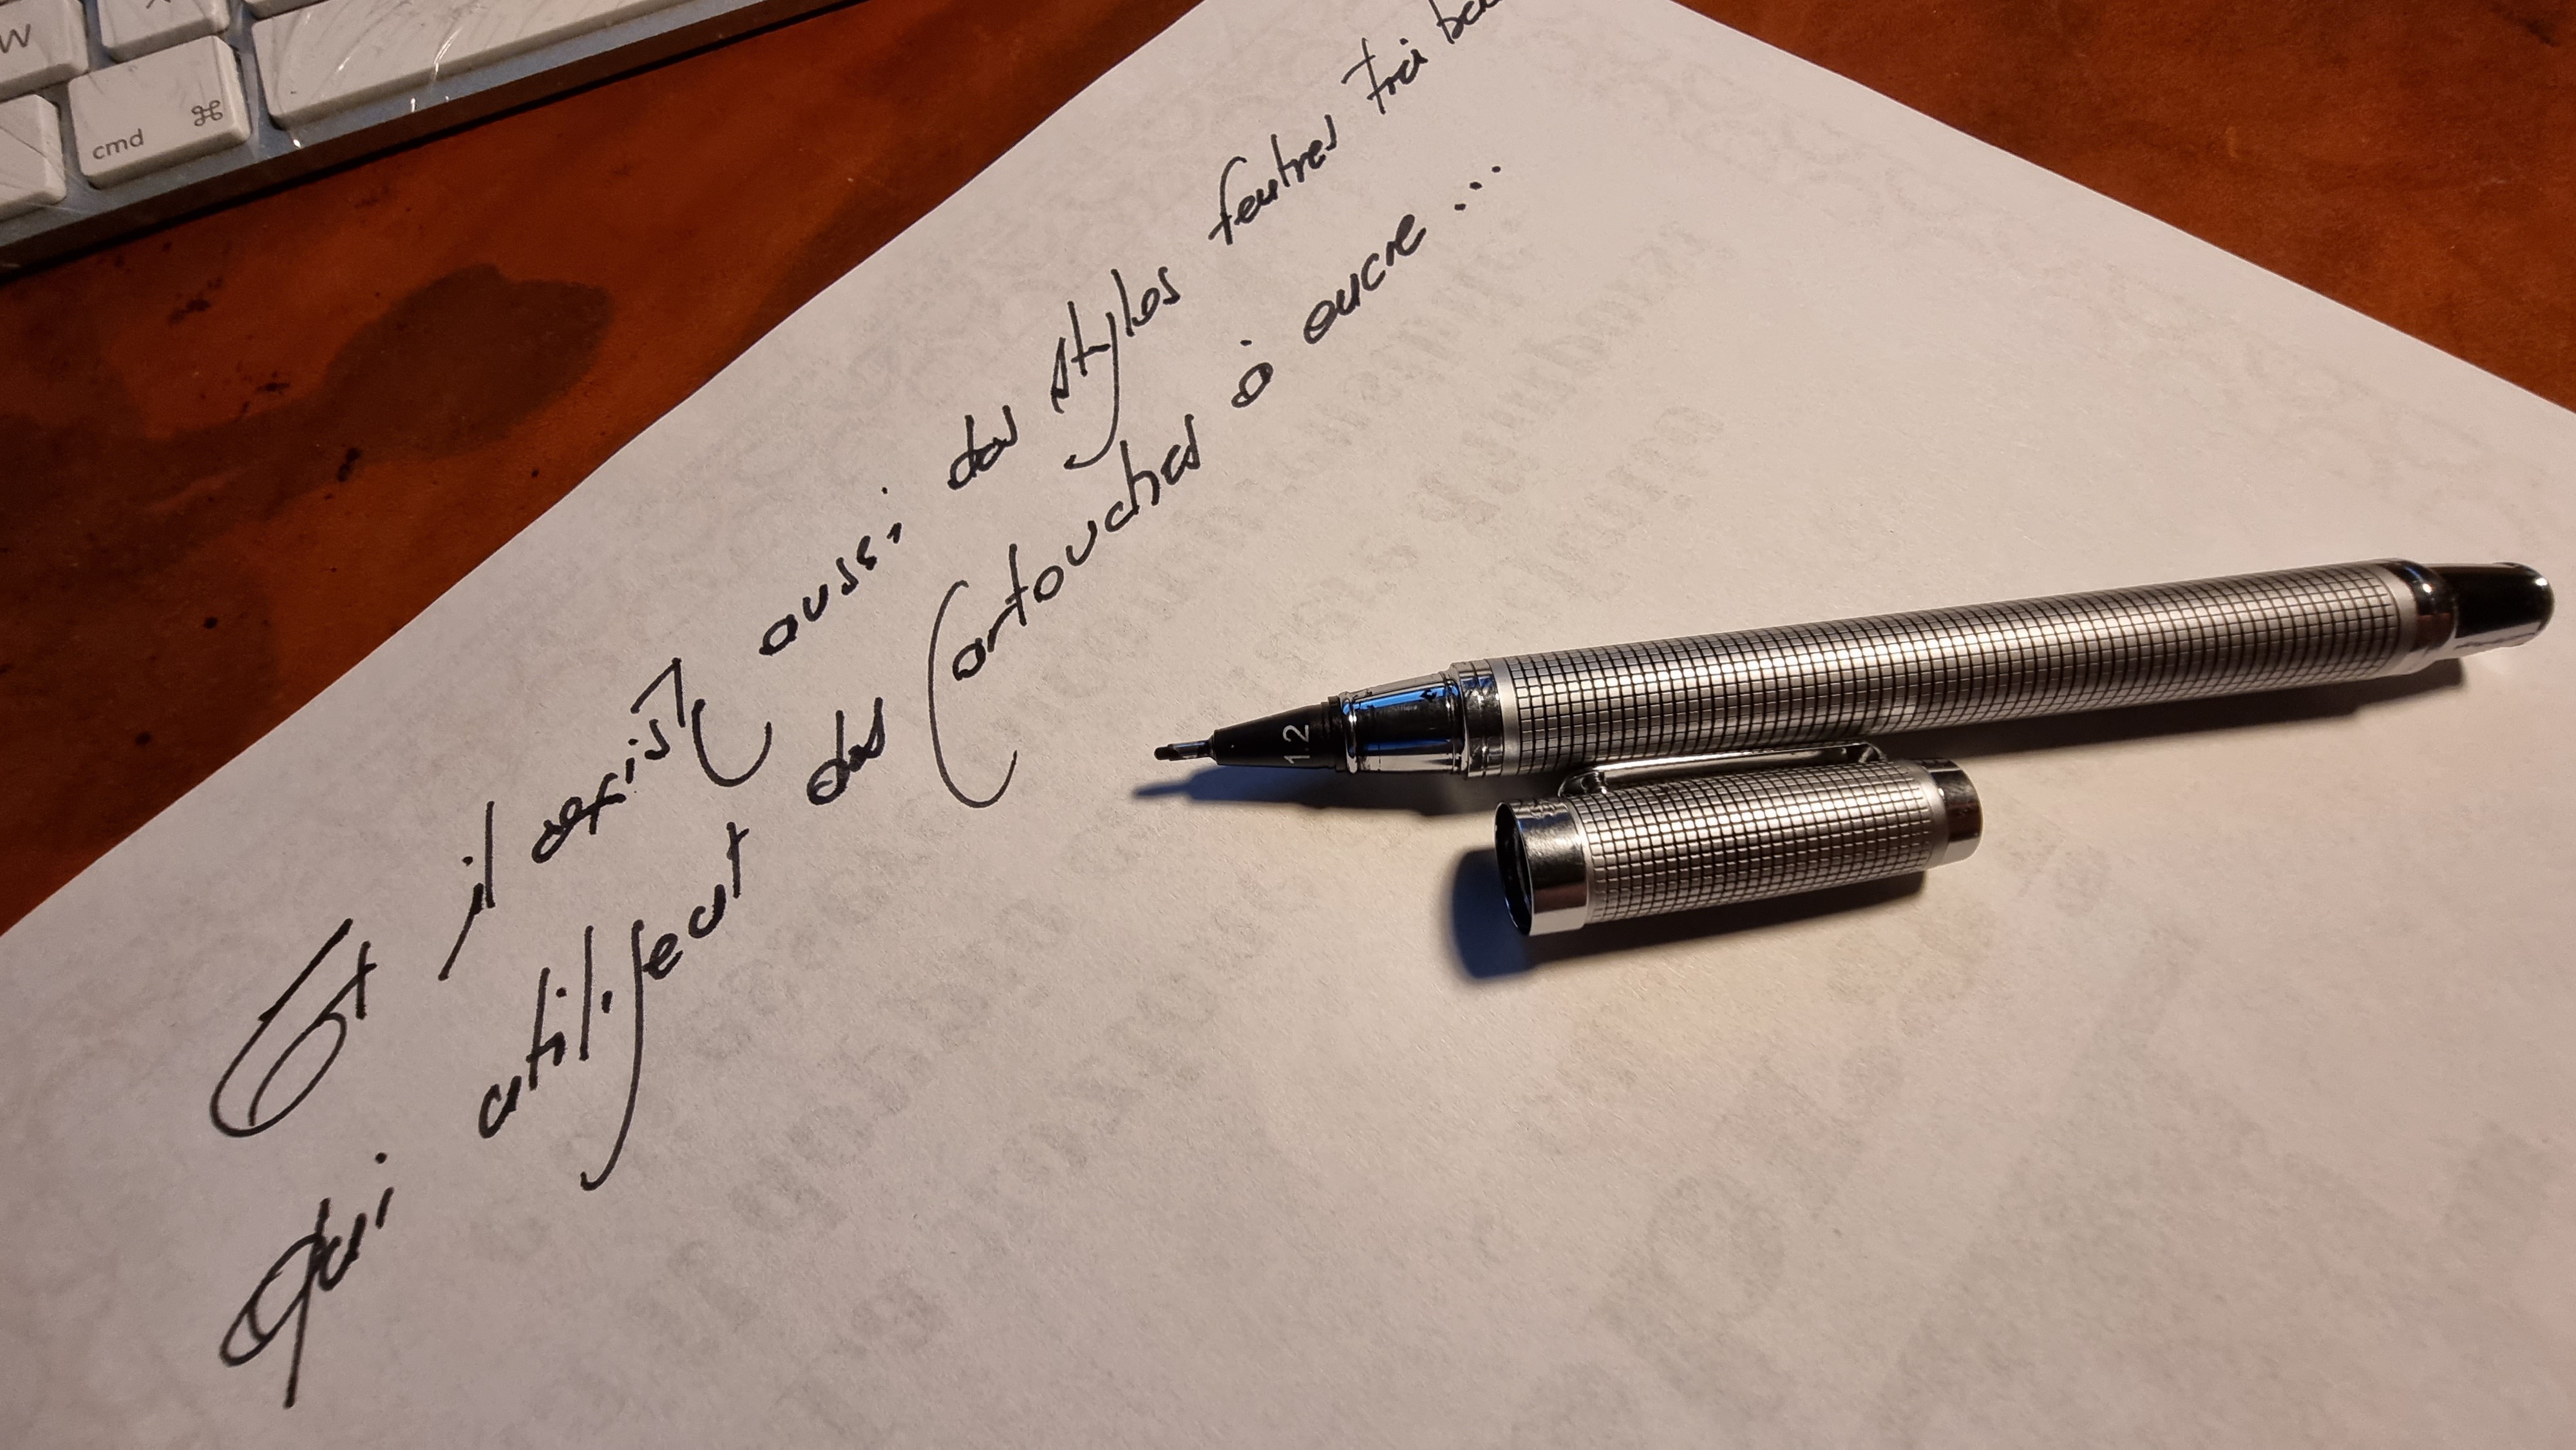 W
cmd ⌘
Et il existe aussi des stylos feutres
qui utilisent des Cartouches à encre ...
1.2